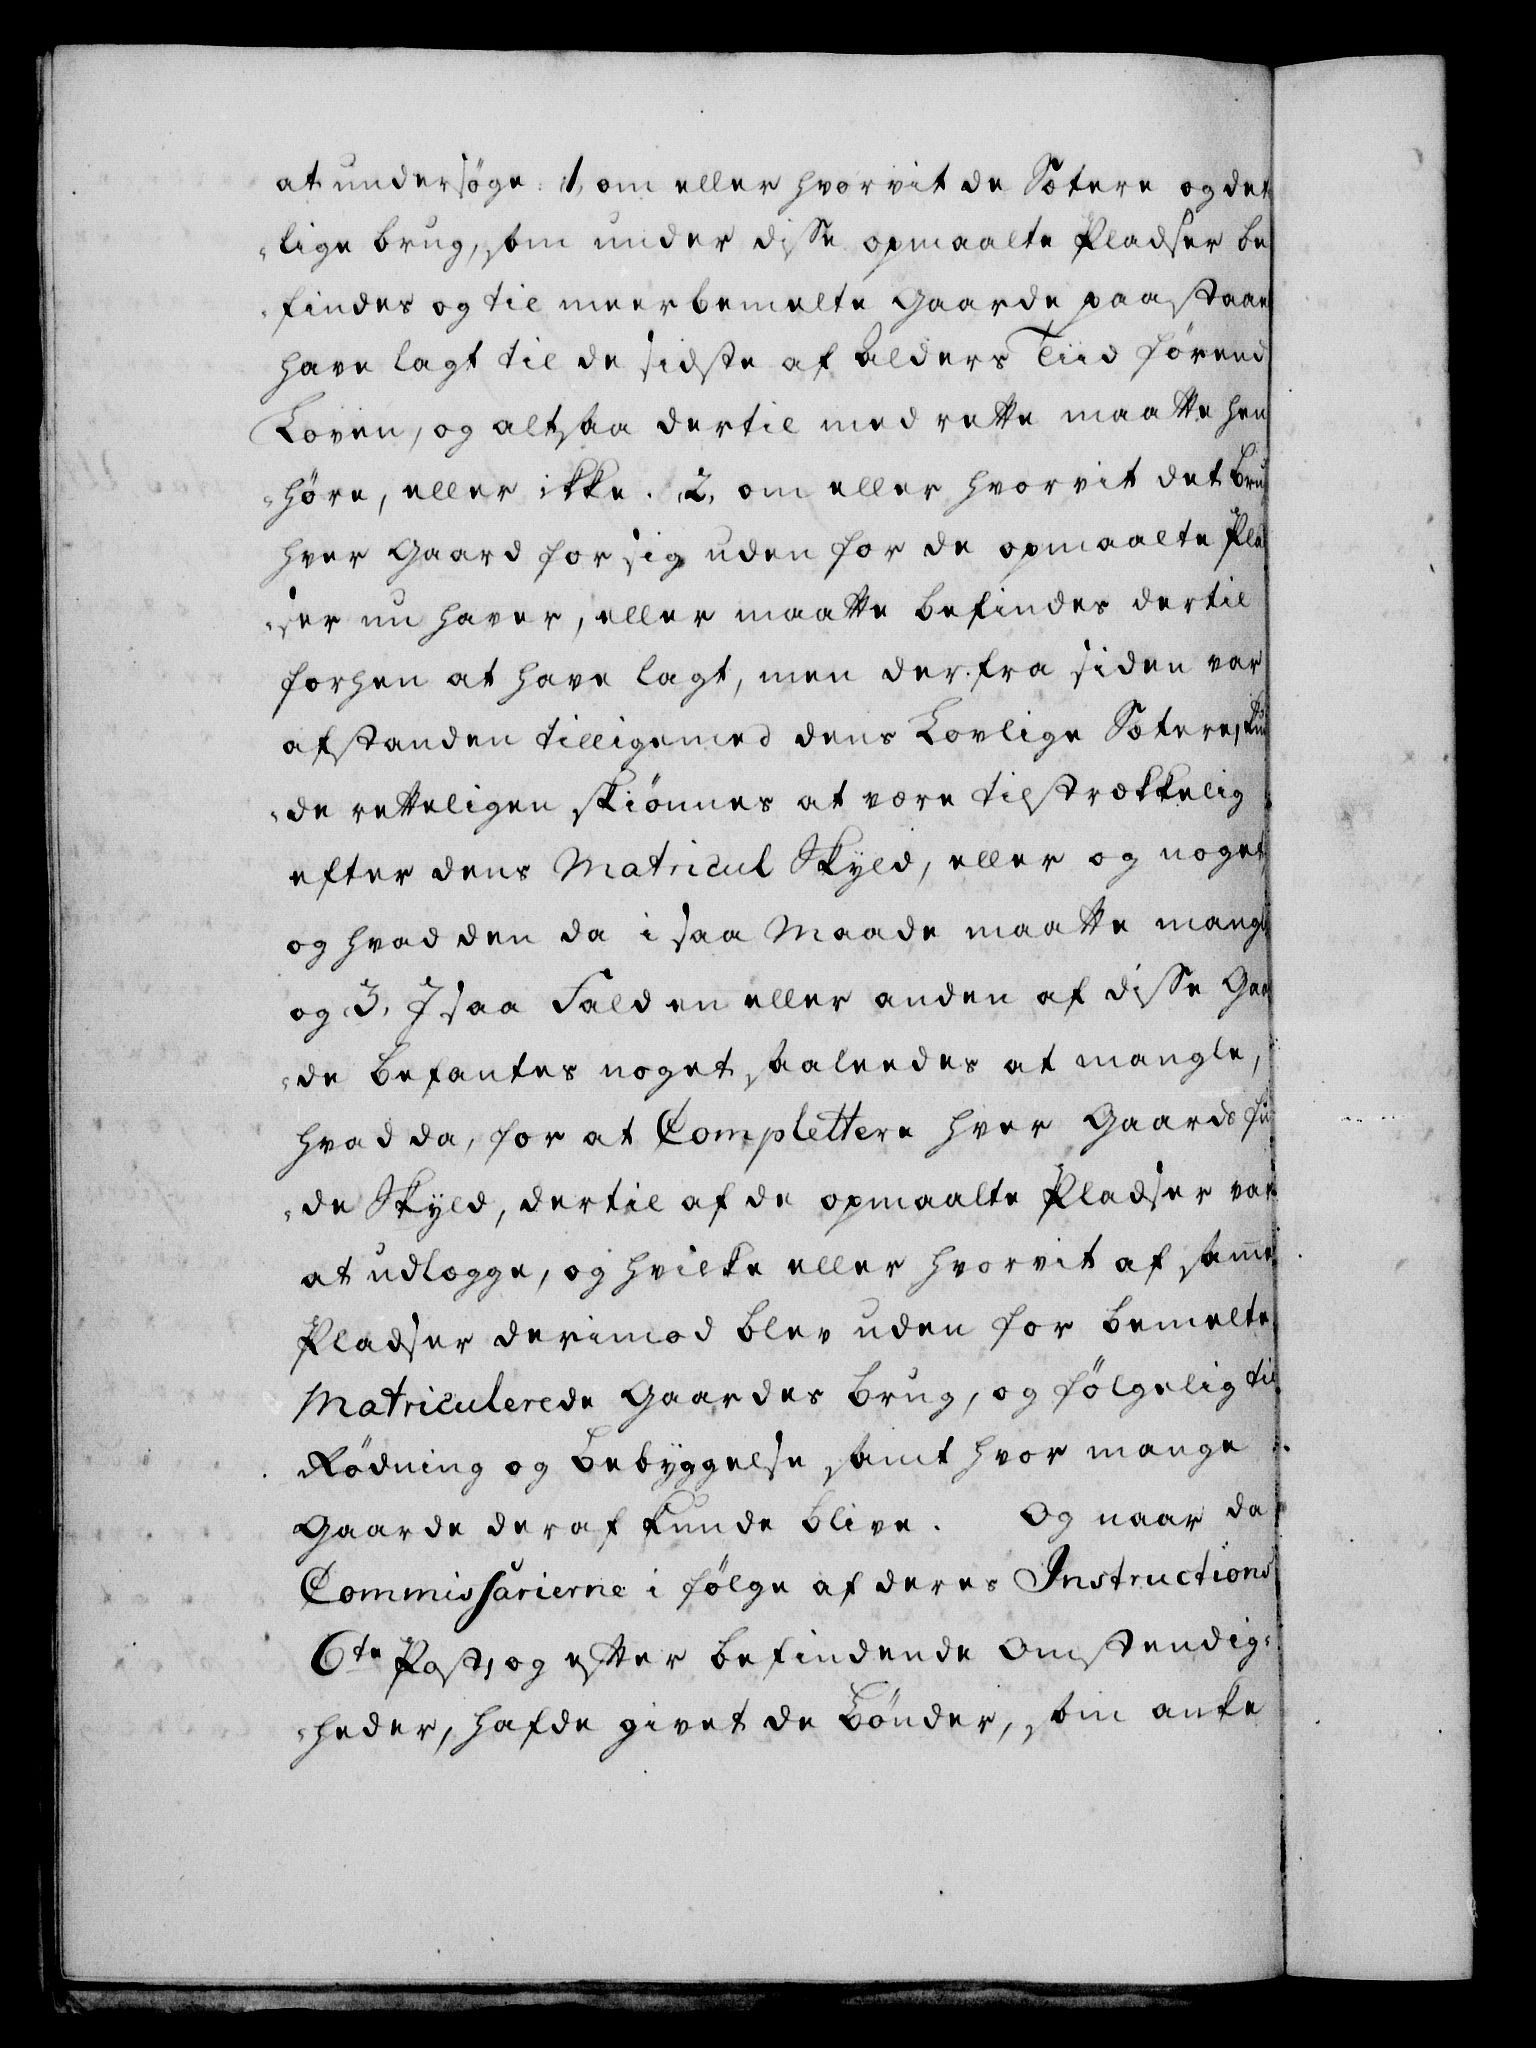 at undersöge: 1, om eller hvorvit de Sætere og det
„lige brug, som under disse opmaalte Pladser be
„findes og til meerbemelte Gaarde paastaaes
have lagt til de sidste af alders Tiid førend
Loven, og altsaa dertil med rette maatte hen
„høre, eller ikke. 2, om eller hvorvit det Brug
hver Gaard for sig uden for de opmaalte Plad
„ser nu haver, eller maatte befindes dertil
forhen at have lagt, men derfra siden var
afstanden tilligemed dens Lovlige Sætere, kun
„de retteligen skiønnes at være tilstrækkelig
efter dens Matricul Skyld, eller og noget,
og hvad den da i saa Maade maatte mangle,
og 3, J saa Fald en eller anden af disse Gaar
„de befantes noget saaleedes at mangle,
hvad da, for at Complettere hver Gaards ful
„de Skyld, dertil af de opmaalte Pladser var
at udlægge, og hvilke eller hvorvit af samme
Pladser derimod blev uden for bemelte
Matriculerede Gaardes brug, og følgelig til
Rødning og Bebyggelse, samt hvor mange
Gaarde deraf kunde blive. Og naar da
Commissarierne i følge af deres Instructions
6te Post, og efter befindende Omstendig„
„heder, hafde givet de Bønder, som anke